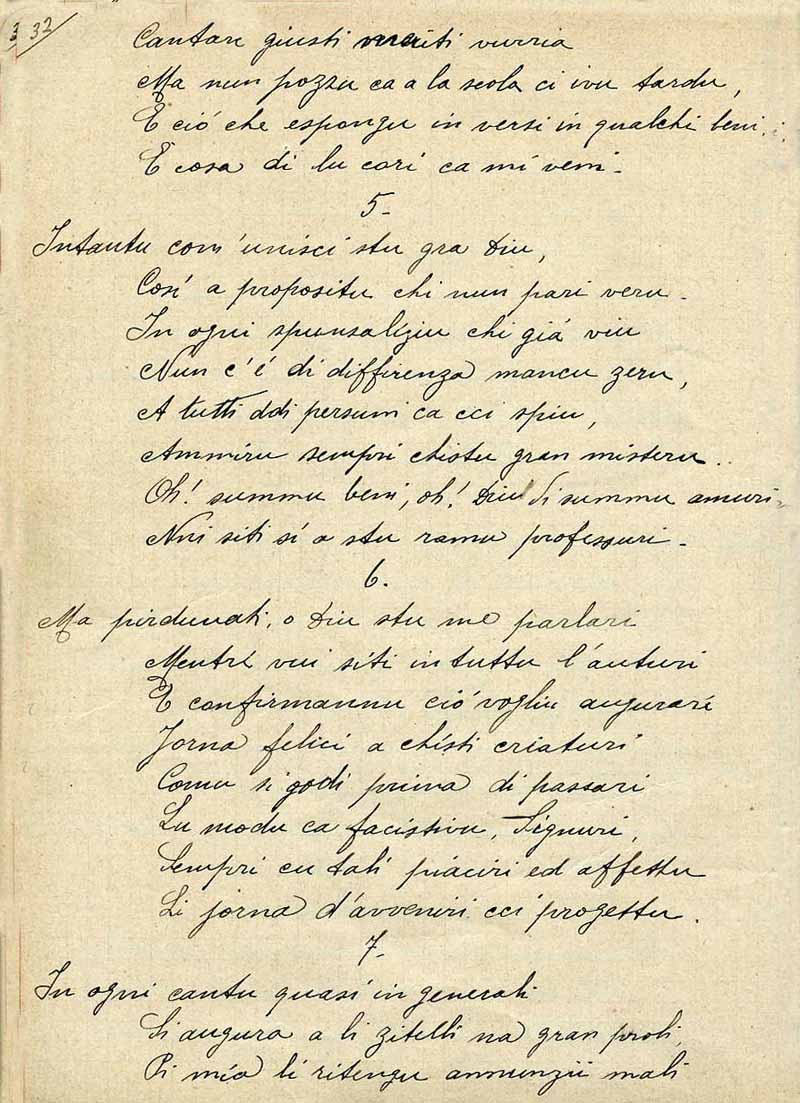 3 32
Cantare giusti meriti vurria
Ma nun pozzu ca a la scola ci ivu tardu,
E ció che espongu in versi in qualchi beni.
E cosa di lu cori ca mi veni.
5-
Intantu com'unisci stu gra Diu,
Cosí a propositu chi nun pari veru.
In ogni spunsaliziu chi giá viu
Nun c'é di differenza mancu zeru,
A tutti ddi persuni ca cci spiu,
Ammiru sempri chistu gran misteru..
Oh! summu beni, oh! Diu di summu amuri
Nni siti sí a stu ramu professuri.
6.
Ma pirdunati, o Diu stu me parlari
Mentri vui siti in tuttu l'auturi
E confirmannu ció vogliu augurari
Jorna felici a chisti criaturi
Comu si godi prima di passari
Lu modu ca facistivu, Signuri,
Sempri cu tali piaciri ed affettu
Li jorna d'avveniri cci progettu.
7-
In ogni cantu quasi in generali
Si augura a li zitelli na gran proli,
Pi mia li ritengu annunzii mali